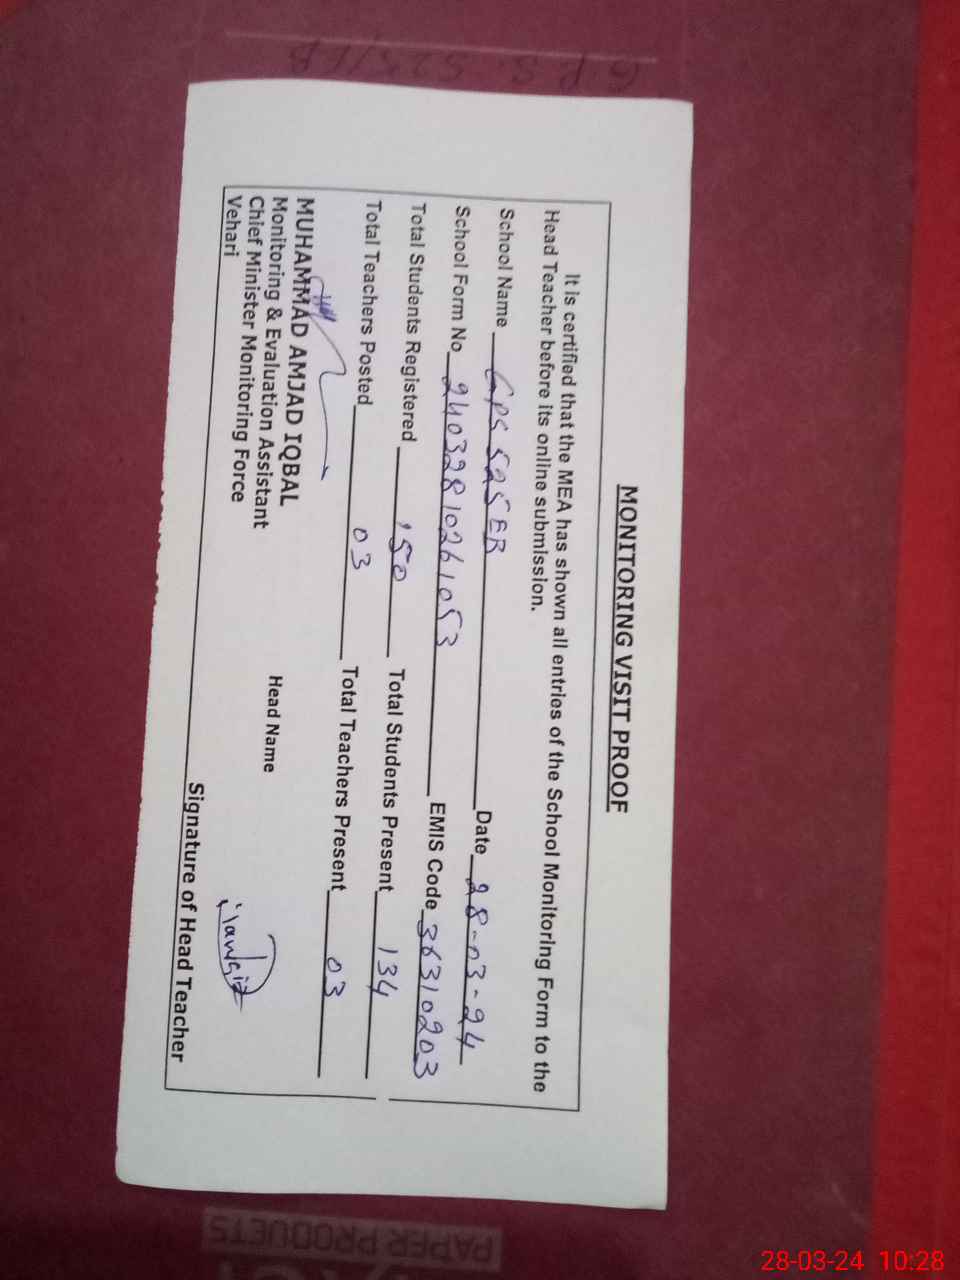 MONITORING VISIT PROOF
It is certified that the MEA has shown all entries of the School Monitoring Form to the
Head Teacher before its online submission.
School Name GPS 525 EB Date 28-03-24
School Form No 240328 10261053 EMIS Code 36310203
Total Students Registered 150 Total Students Present 134
Total Teachers Posted 03 Total Teachers Present 03
MUHAMMAD AMJAD IQBAL
Monitoring & Evaluation Assistant
Chief Minister Monitoring Force
Vehari
Head Name
Signature of Head Teacher
PAPER PRODUCTS
28-03-24 10:28